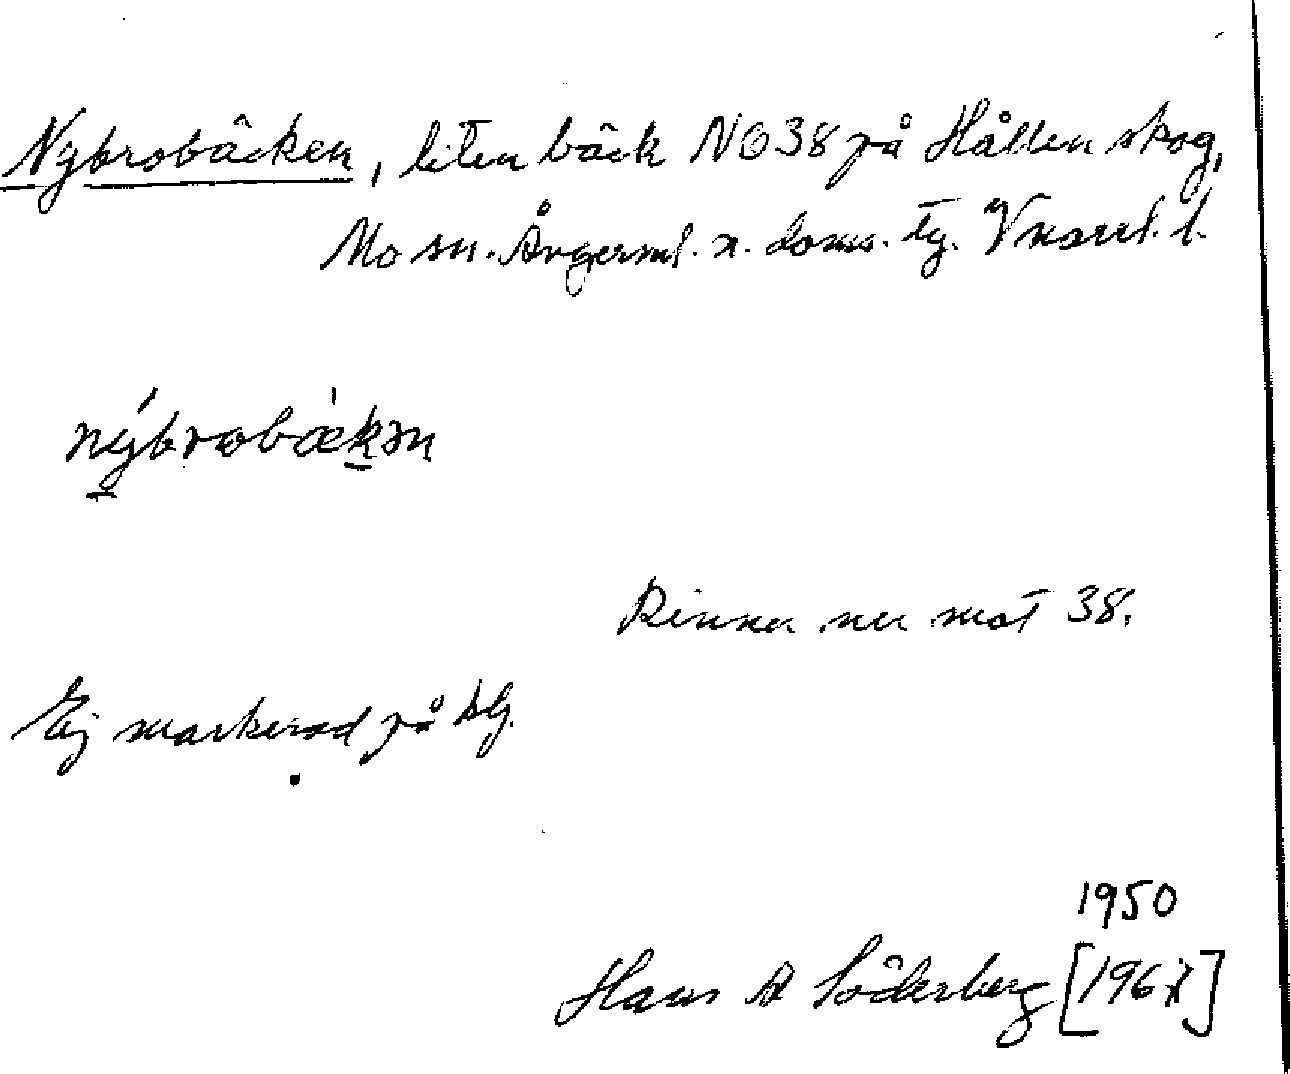 Nybrobäcken, liten bäck NO 38 på Hållen skog,
Mo sn. Ångerml. n. doms. tg. Vnorrl. l.
nybrobækən
Rinner ner mot 38.
Ej markerad på blj.
1950
Hans A Söderberg [1961]